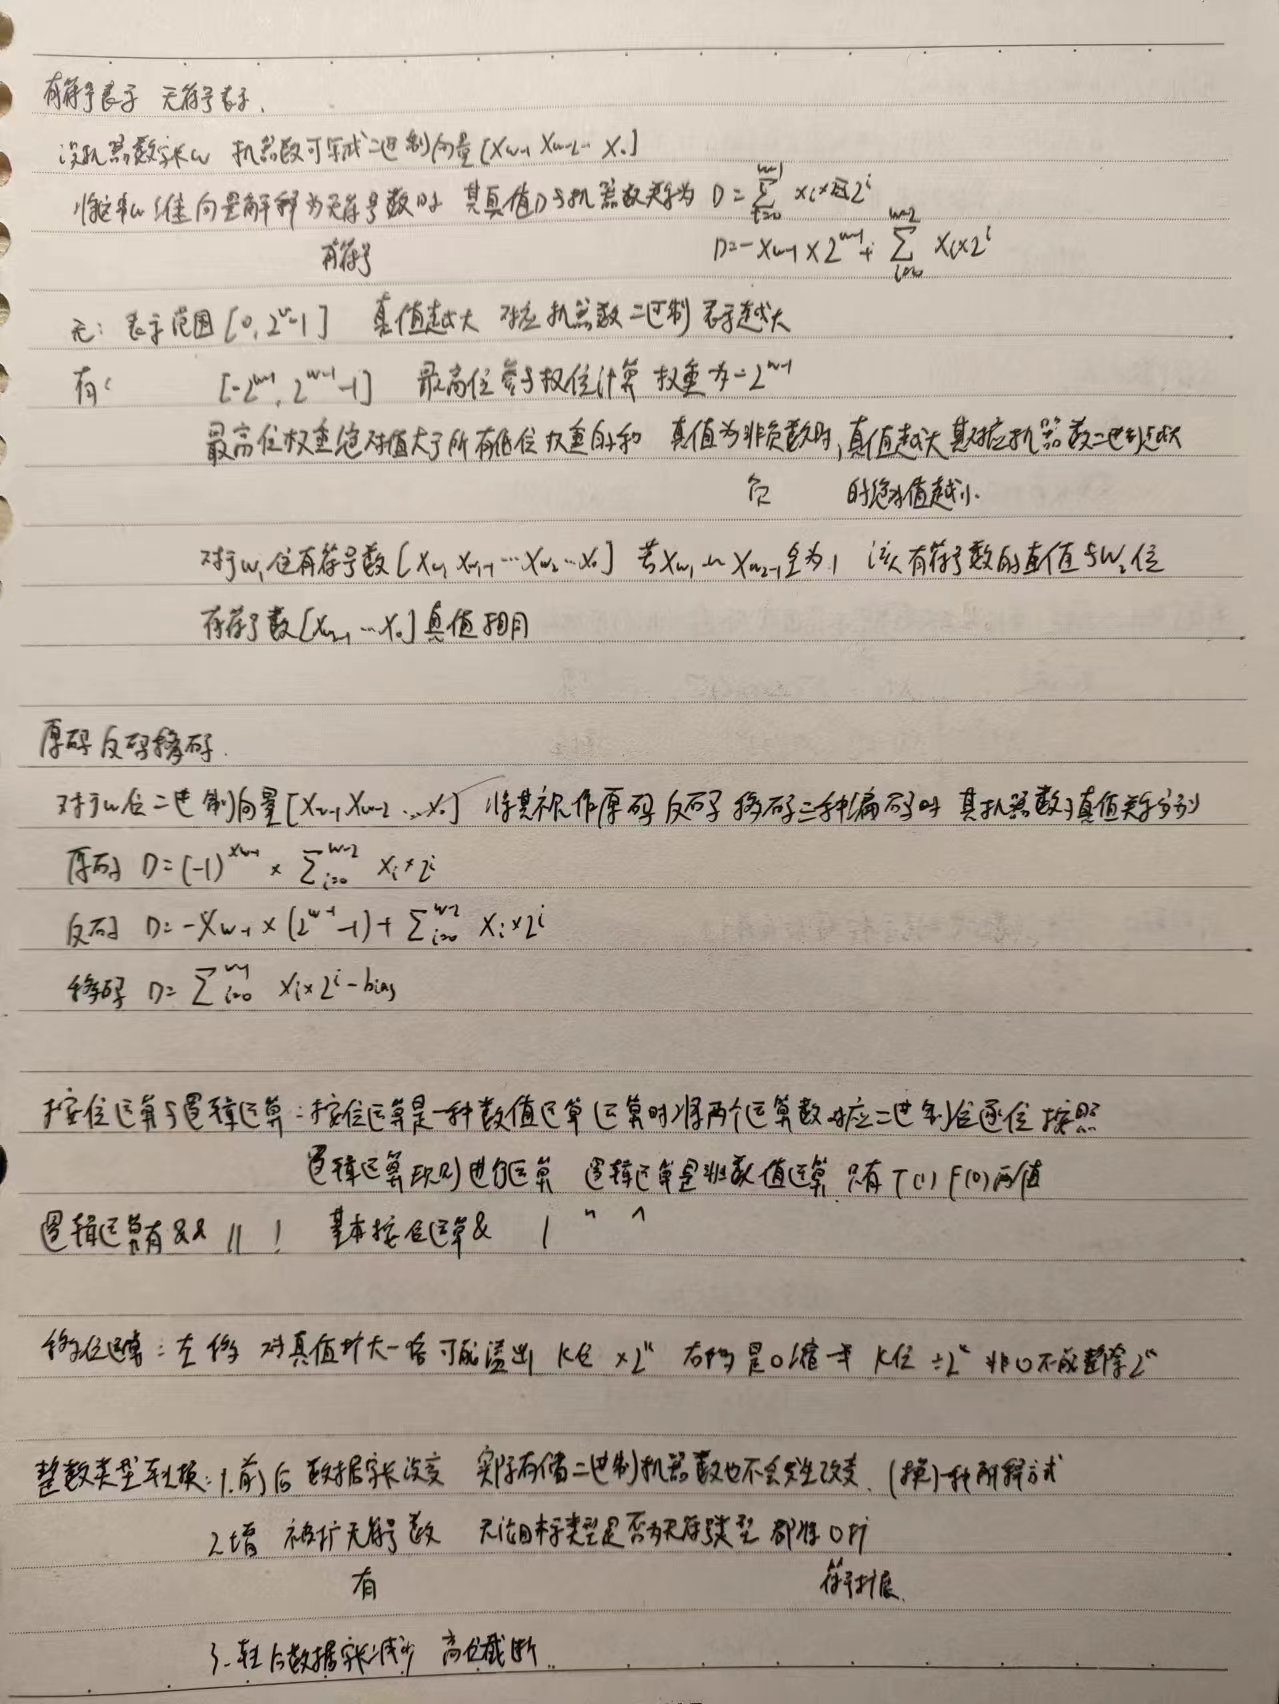 有符号表示 无符号表示.
设机器数字长w 机器数可写成二进制向量[Xw-1 Xw-2… X0]
将这串w维向量解释为无符号数时 其真值D与机器数关系为 D=∑_{i=0}^{w-1} xi×2^i
有符号 D=-Xw-1×2^{w-1}+∑_{i=0}^{w-2} Xi×2^i
无: 表示范围[0, 2^w-1] 真值越大 对应机器数二进制表示越大
有: [-2^{w-1}, 2^{w-1}-1] 最高位参与权位计算 权重为-2^{w-1}
最高位权重绝对值大于所有低位权重的和 真值为非负数时,真值越大其对应机器数二进制越大
负 的绝对值越小.
对于w1位有符号数[Xw1 Xw1-1…Xw2…X0] 若Xw1 Xw2-1全为1 该有符号数的真值与W2位
有符号数[Xw2-1…X0]真值相同
原码 反码 移码.
对于w位二进制向量[Xw-1 Xw-2…X0] 将其视作原码 反码 移码三种编码时 其机器数与真值关系分别
原码 D=(-1)^{xw-1}×∑_{i=0}^{w-2} Xi×2^i
反码 D=-Xw-1×(2^{w-1}-1)+∑_{i=0}^{w-2} Xi×2^i
移码 D=∑_{i=0}^{w-1} Xi×2^i-bias
按位运算与逻辑运算:按位运算是一种数值运算 运算时将两个运算数对应二进制位逐位按照
逻辑运算规则进行运算 逻辑运算是非数值运算 只有T(1) F(0)两值
逻辑运算有&& || ! 基本按位运算& | ~ ^
移位运算:左移 对真值扩大一倍 可能溢出 K位 ×2^k 右移 是缩一半 K位 ÷2^k 非0不能整除2^k
整数类型转换:1.前后数据字长没变 实际存储二进制机器数也不会发生改变.(换)一种解释方式
2.增 被扩无符号数 无论目标类型是否为无符号类型 都将0扩
有 符号扩展.
3.转后数据字长减少 高位截断.